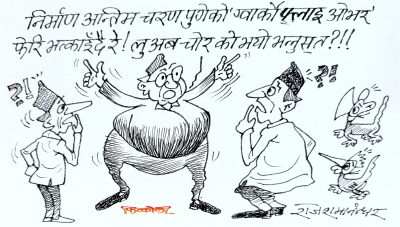 निर्माण अन्तिम चरण पुगेको 'ग्वार्को फ्लाइ ओभर'
फेरि भत्काइँदै रे! लु अब चोर को भयो भन्नुस् त?!!
?!
?!
राजेश मानन्धर